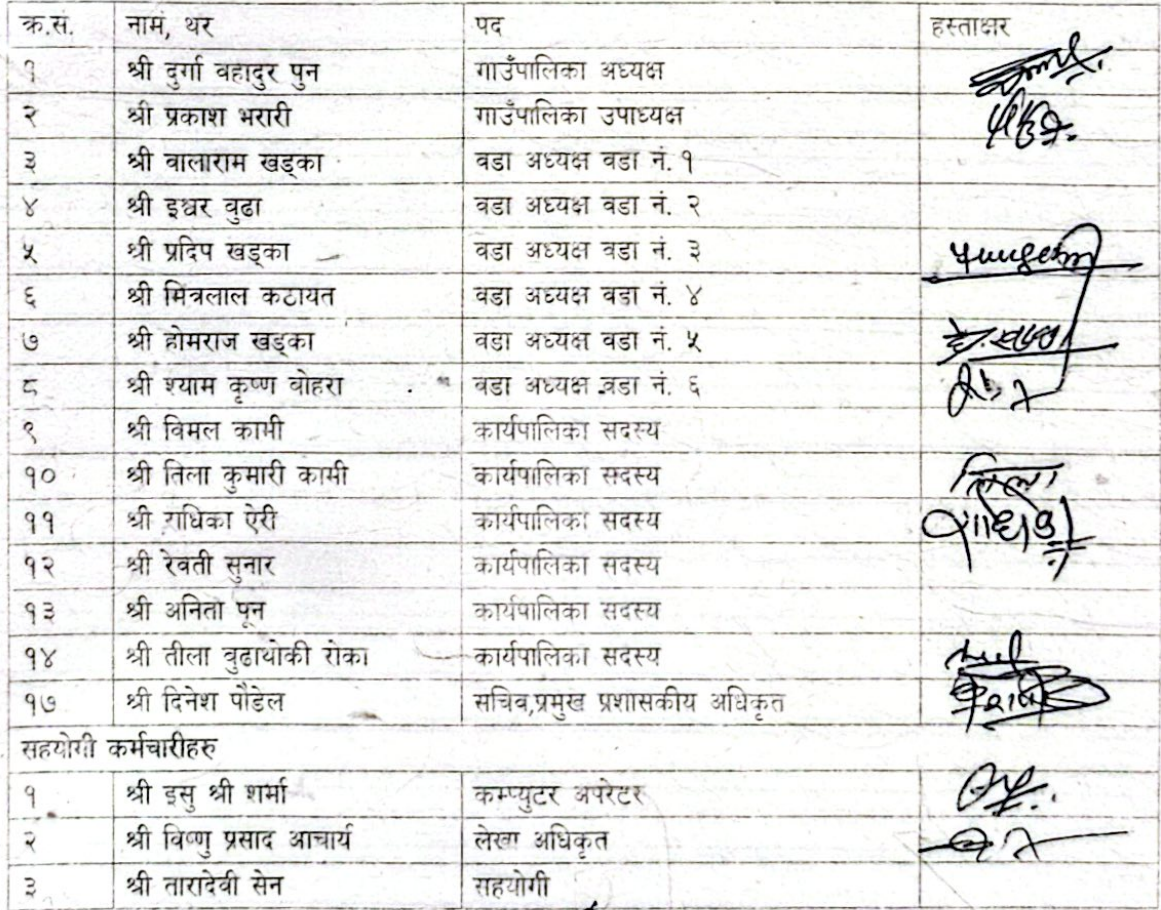 क्र.सं. नाम, थर पद हस्ताक्षर
१ श्री दुर्गा वहादुर पुन गाउँपालिका अध्यक्ष
२ श्री प्रकाश भरारी गाउँपालिका उपाध्यक्ष
३ श्री वालाराम खड्का वडा अध्यक्ष वडा नं. १
४ श्री इश्वर वुढा वडा अध्यक्ष वडा नं. २
५ श्री प्रदिप खड्का वडा अध्यक्ष वडा नं. ३
६ श्री मित्रलाल कटायत वडा अध्यक्ष वडा नं. ४
७ श्री होमराज खड्का वडा अध्यक्ष वडा नं. ५
८ श्री श्याम कृष्ण वोहरा वडा अध्यक्ष वडा नं. ६
९ श्री विमल कामी कार्यपालिका सदस्य
१० श्री तिला कुमारी कामी कार्यपालिका सदस्य
११ श्री राधिका ऐरी कार्यपालिका सदस्य
१२ श्री रेवती सुनार कार्यपालिका सदस्य
१३ श्री अनिता पून कार्यपालिका सदस्य
१४ श्री तीला वुढाथोकी रोका कार्यपालिका सदस्य
१७ श्री दिनेश पौडेल सचिव,प्रमुख प्रशासकीय अधिकृत
सहयोगी कर्मचारीहरु
१ श्री इसु श्री शर्मा कम्प्युटर अपरेटर
२ श्री विष्णु प्रसाद आचार्य लेखा अधिकृत
३ श्री तारादेवी सेन सहयोगी